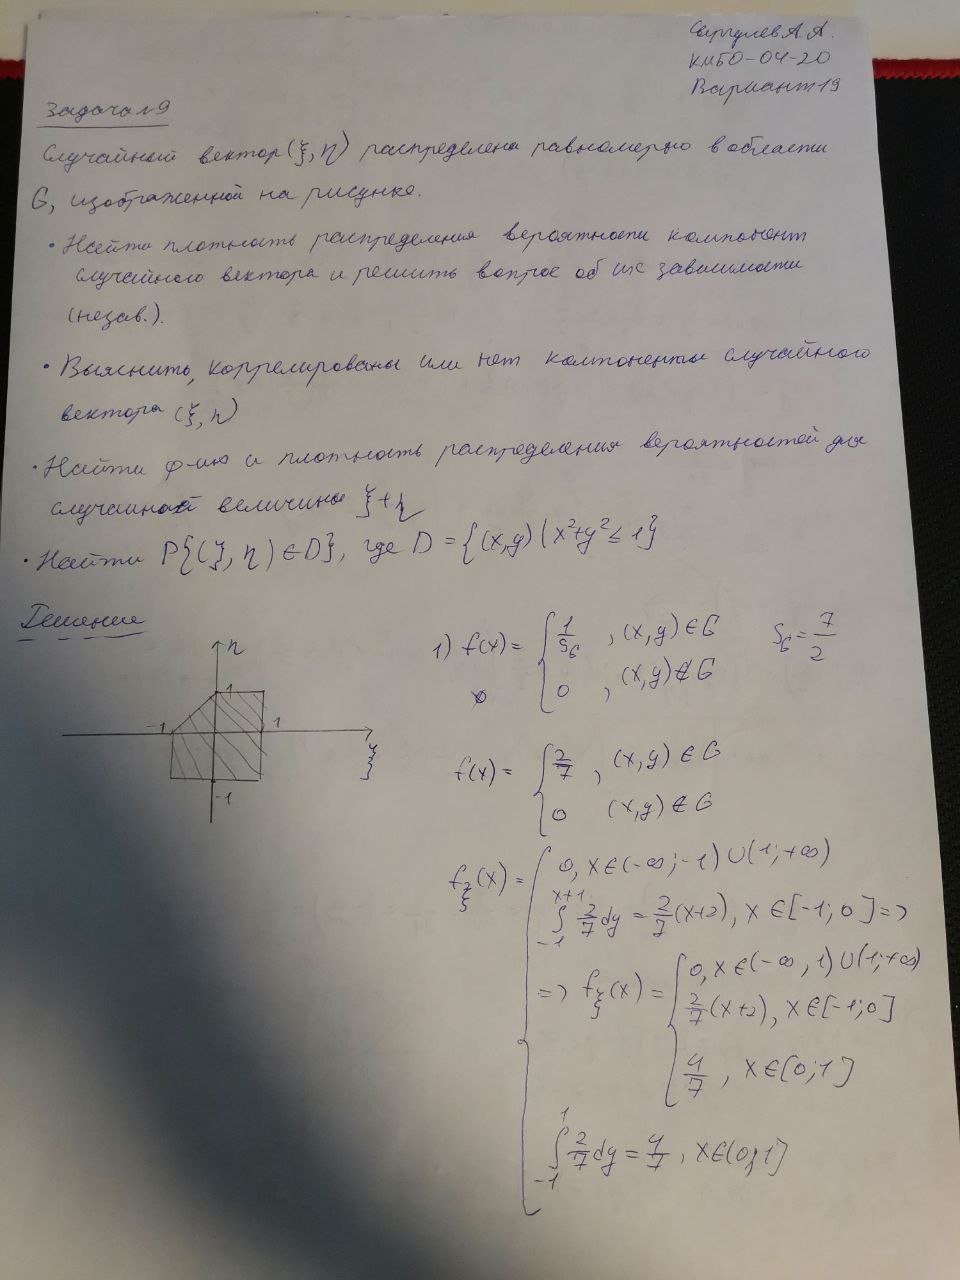 Сергулев А. А.
КМБО-04-20
Вариант 19
Задача №9
Случайный вектор (ξ, η) распределена равномерно в области
G, изображенной на рисунке.
• Найти плотность распределения вероятности компонент
случайного вектора и решить вопрос об их зависимости
(незав.).
• Выяснить, коррелированы или нет компоненты случайного
вектора (ξ, η)
• Найти ф-ию и плотность распределения вероятностей для
случайной величины ξ+η
• Найти P{(ξ, η) ∈ D}, где D = {(x,y) | x²+y² ≤ 1}
Решение
η
1
-1
1
ξ
-1
1) f(x) = { 1/S_G , (x,y) ∈ G     S_G = 7/2
0 , (x,y) ∉ G
f(x) = { 2/7 , (x,y) ∈ G
0   (x,y) ∉ G
f_ξ(x) = { 0, x ∈ (-∞; -1) ∪ (1; +∞)
∫_{-1}^{x+1} 2/7 dy = 2/7 (x+2), x ∈ [-1; 0] =>
=> f_ξ(x) = { 0, x ∈ (-∞, 1) ∪ (1; +∞)
2/7 (x+2), x ∈ [-1; 0]
4/7 , x ∈ [0; 1]
∫_{-1}^{1} 2/7 dy = 4/7 , x ∈ (0; 1]